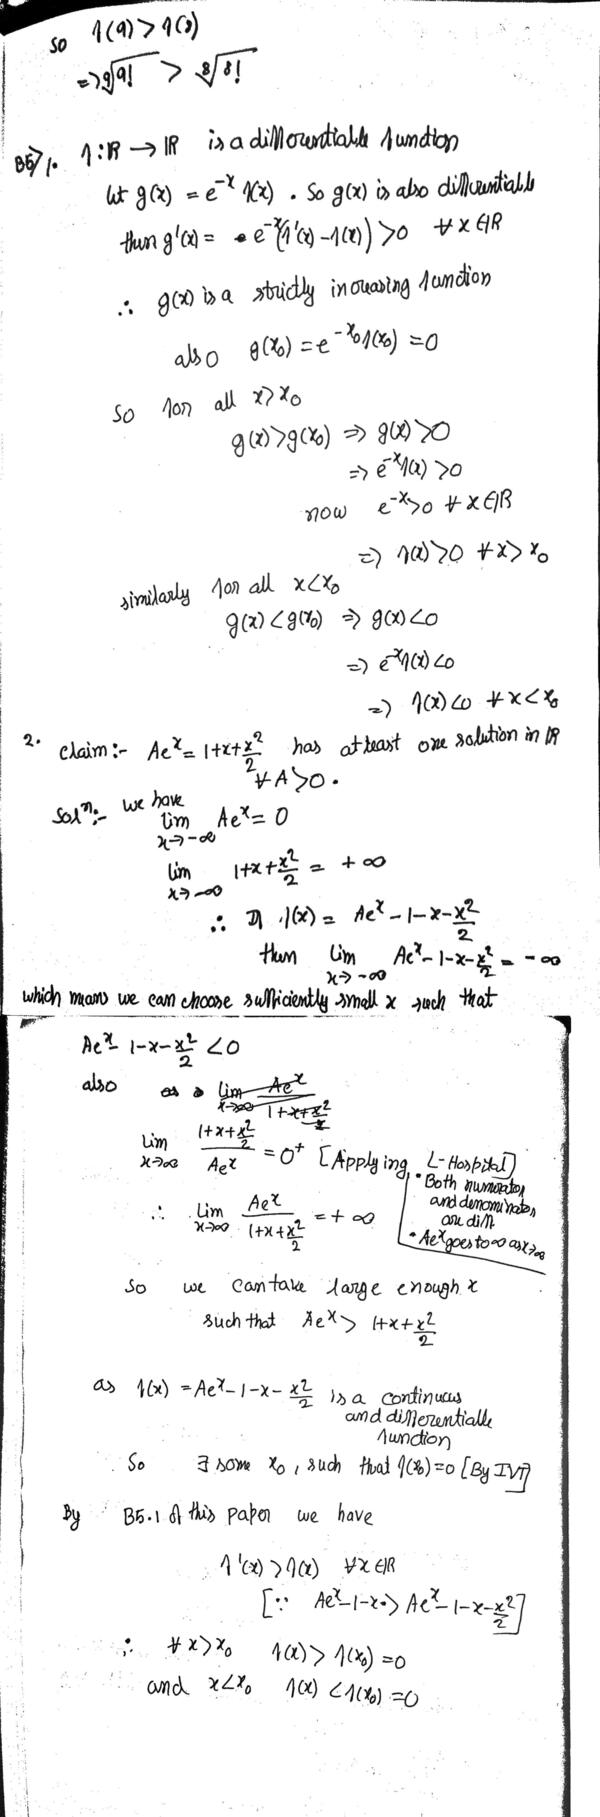 so f(9) > f(8)
=> \sqrt[9]{9!} > \sqrt[8]{8!}
B5> 1. f: ℝ → ℝ is a differentiable function
let g(x) = e^{-x} f(x). So g(x) is also differentiable
then g'(x) = e^{-x}(f'(x) - f(x)) > 0 ∀ x ∈ ℝ
∴ g(x) is a strictly increasing function
also g(x₀) = e^{-x₀} f(x₀) = 0
So for all x > x₀
g(x) > g(x₀) => g(x) > 0
=> e^{-x} f(x) > 0
now e^{-x} > 0 ∀ x ∈ ℝ
=> f(x) > 0 ∀ x > x₀
similarly for all x < x₀
g(x) < g(x₀) => g(x) < 0
=> e^{-x} f(x) < 0
=> f(x) < 0 ∀ x < x₀
2. Claim:- Ae^x = 1+x+\frac{x^2}{2} has at least one solution in ℝ
∀ A > 0.
Solⁿ:- we have
lim_{x→-∞} Ae^x = 0
lim_{x→-∞} 1+x+\frac{x^2}{2} = +∞
∴ If f(x) = Ae^x - 1 - x - \frac{x^2}{2}
then lim_{x→-∞} Ae^x - 1 - x - \frac{x^2}{2} = -∞
which means we can choose sufficiently small x such that
Ae^x - 1 - x - \frac{x^2}{2} < 0
also as lim_{x→∞} \frac{Ae^x}{1+x+\frac{x^2}{2}}
lim_{x→∞} \frac{1+x+\frac{x^2}{2}}{Ae^x} = 0⁺ [Applying L-Hospital]
• Both numerator
and denominator
are diff.
• Ae^x goes to ∞ as x→∞
∴ lim_{x→∞} \frac{Ae^x}{1+x+\frac{x^2}{2}} = +∞
So we can take large enough x
such that Ae^x > 1+x+\frac{x^2}{2}
as f(x) = Ae^x - 1 - x - \frac{x^2}{2} is a continuous
and differentiable
function
So ∃ some x₀, such that f(x₀) = 0 [By IVT]
By B5.1 of this paper we have
f'(x) > f(x) ∀ x ∈ ℝ
[∵ Ae^x - 1 - x > Ae^x - 1 - x - \frac{x^2}{2}]
∴ ∀ x > x₀ f(x) > f(x₀) = 0
and x < x₀ f(x) < f(x₀) = 0